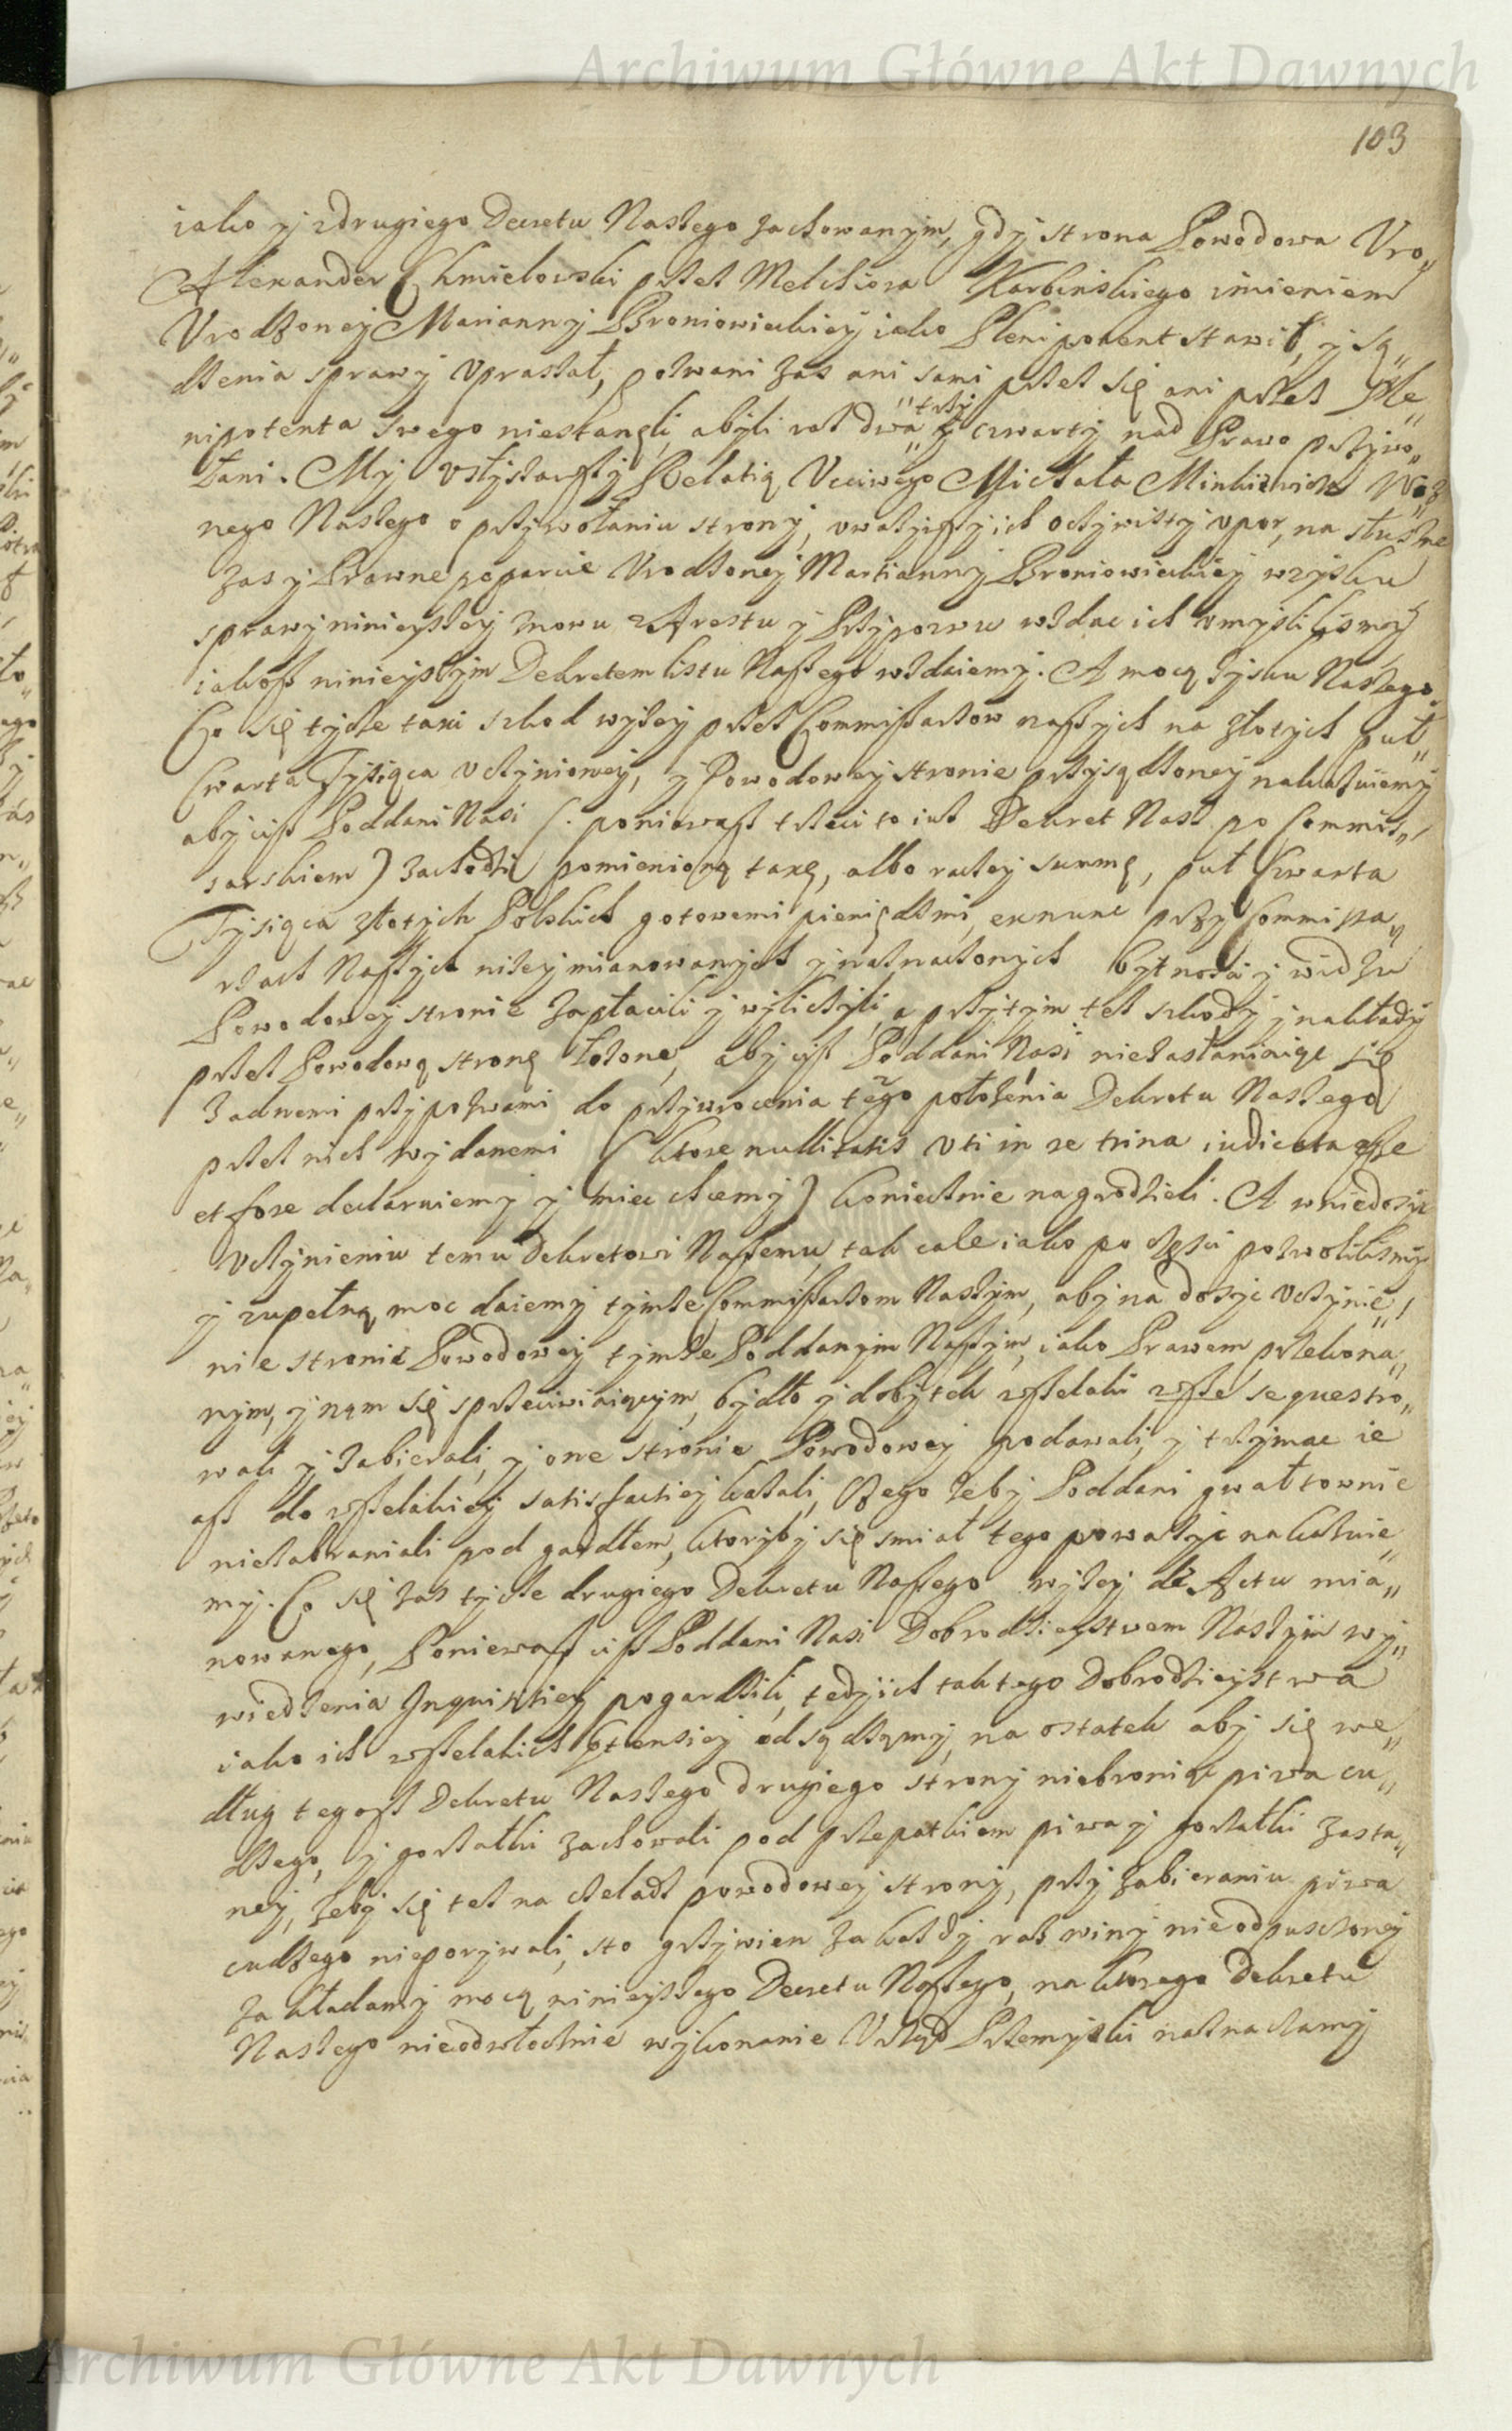 Archiwum Główne Akt Dawnych
103
iako y zdrugiego Decretu Naszego zachowanym, gdy strona Powodowa Vro„
Alexander Chmielowski przez Melchiora Karbinskiego imieniem
Vrodzoney Marianny Broniowickiey iako Plenipotent stawił, y są„
dzenia sprawy vpraszał, pozwani zas ani sami przez się ani przez Ple„
nipotenta swego niestanęli, abyli raz dwa „trzy„ y czwarty nad Prawo przywo„
łani. My vsłyszawszy Relatią Vcciwego Michała Minkiewicza Woź„
nego Naszego o przywołaniu strony, vważywszy ich oczywisty vpor, na słuszne
zas y Prawne poparcie Vrodzoney Marianny Broniowickiey wzysku
sprawy ninieyszey znowu z Arestu y Przypozwu wzdac ich vmyslilismy
iakosz ninieyszym Dekretem listu Naszego wzdaiemy. A mocą zysku Naszego
Co się tycze taxi szkod wyzey przez Commissarzow naszych na złotych puł„
Czwarta Tysiąca vczynioney, y Powodowey stronie przysądzoney nakazuiemy
aby cisz Poddani Nasi (. poniewasz trzeci to iusz Dekret Nasz po Commis„
sarskiem) zachodzi pomienioną taxę, albo raczey summę, puł Czwarta
Tysiąca złotych Polskich gotowemi pieniędzmi, exnunc przy Commissa„
rzach Naszych nizey mianowanych y naznaczonych bytnosci y widzu
Powodowey stronie zapłacili y wyliczyli, a przytym tesz szkody y nakłady
przez Powodową stronę łozone, aby cisz Poddani Nasi niezasłaniaiąc się
zadnemi przypozwami do przywrocenia tego połozenia Dekretu Naszego
przez nich wydanemi (ktore nullitatis vti in re trina iudicata esse
et fore declaruiemy y miec chcemy) koniecznie nagrodzieli. A wniedosyc
vczynieniu temu Dekretowi Naszemu, tak cale iako po częsci pozwolilismy
y zupełną moc daiemy tymze Commissarzom Naszym, aby na dosyc vczynie„
nie stronie Powodowey tymze Poddanym Naszym, iako Prawem przekona„
nym, y nąm się sprzeciwiaiącym, bydło y dobytek wszelaki wsze sequestro„
wali y zabierali, y one stronie Powodowey podawali, y trzymac ie
asz do wszelakiey satisfactiey kazali, Czego żeby Poddani gwałtownie
niezabraniali pod gardłem, ktoryby się smiał tego powazyc nakazuie„
my. Co się zas tycze drugiego Dekretu Naszego wyzey de Actu mia„
nowanego, Poniewasz cisz Poddani Nasi Dobrodzieystwem Naszym wy„
wiedzenia Inquisitiey pogardzili, tedy ich tak tego Dobrodzieystwa
iako ich wszelakich ptensiey odsądzamy, na ostatek aby się we„
dług tegosz Dekretu Naszego drugiego strony niebronia piwa cu„
dzego, y gorzałki zachowali pod przepatkiem piwa y gorzałki zasta„
ney, zeby się tesz na czeladz powodowey strony, przy zabieraniu piwa
cudzego nieporywali, sto grzywien za kazdy raz winy nieodpuszczoney
zakładamy mocą ninieyszego Decretu Naszego, na ktorego Dekretu
Naszego nieodwłocznie wykonanie Vrząd Przemyski naznaczamy
Archiwum Główne Akt Dawnych